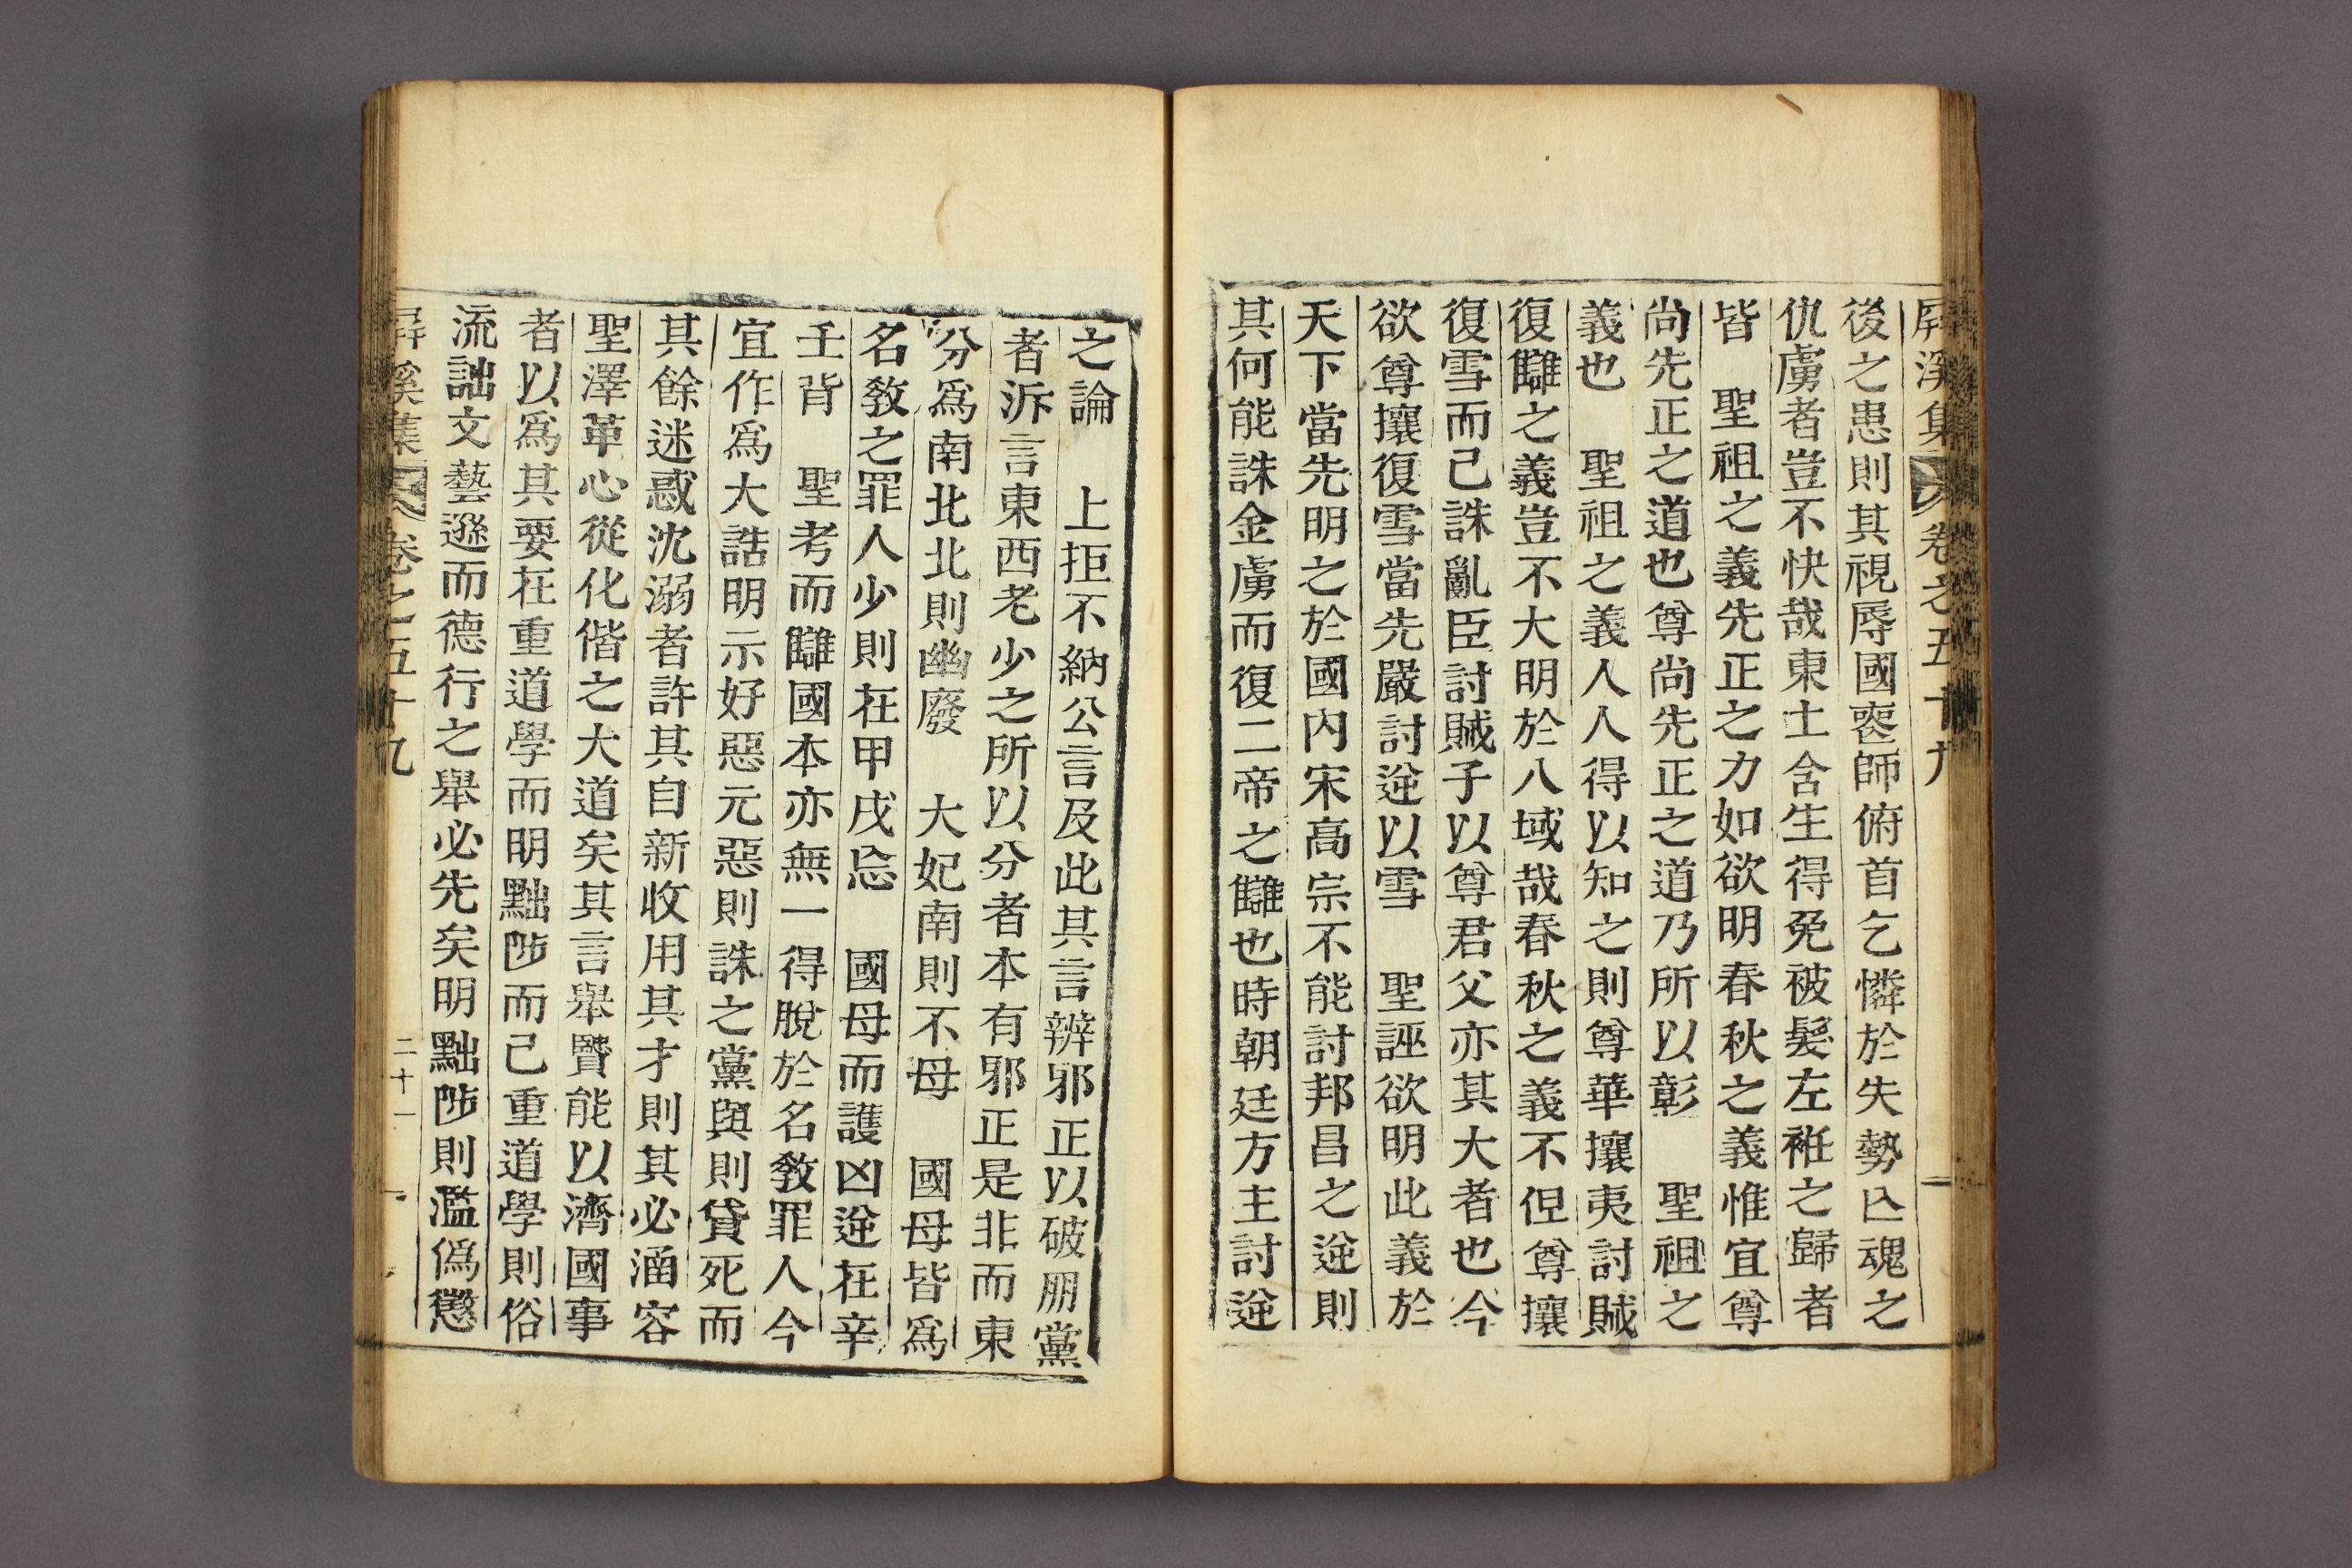 屛溪集 卷之五十九
後之患則其視辱國喪師俯首乞憐於失勢亾魂之
仇虜者豈不快哉東土含生得免被髮左袵之歸者
皆　聖祖之義先正之力如欲明春秋之義惟宜尊
尚先正之道也尊尚先正之道乃所以彰　聖祖之
義也　聖祖之義人人得以知之則尊華攘夷討賊
復讎之義豈不大明於八域哉春秋之義不但尊攘
復雪而已誅亂臣討賊子以尊君父亦其大者也今
欲尊攘復雪當先嚴討逆以雪　聖誣欲明此義於
天下當先明之於國內宋高宗不能討邦昌之逆則
其何能誅金虜而復二帝之讎也時朝廷方主討逆
之論　上拒不納公言及此其言辨邪正以破朋黨
者泝言東西老少之所以分者本有邪正是非而東
分爲南北北則幽廢　大妃南則不母　國母皆爲
名敎之罪人少則在甲戌忘　國母而護凶逆在辛
壬背　聖考而讎國本亦無一得脫於名敎罪人今
宜作爲大誥明示好惡元惡則誅之黨與則貸死而
其餘迷惑沈溺者許其自新收用其才則其必涵容
聖澤革心從化偕之大道矣其言舉賢能以濟國事
者以爲其要在重道學而明黜陟而已重道學則俗
流詘文藝遜而德行之舉必先矣明黜陟則濫僞懲
屛溪集 卷之五十九 二十一